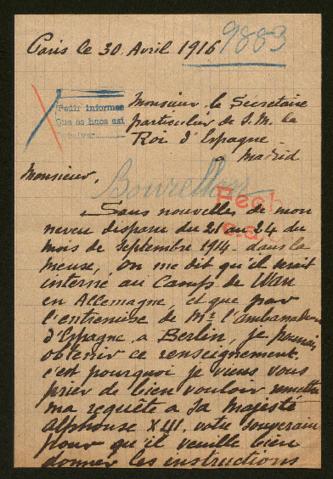 Paris le 30 Avril 1916
9883
Pedir informes
Monsieur le Secrétaire
particulier de S. M. le
Roi d'Espagne
a Madrid
Monsieur,
Sans nouvelles de mon
neveu disparu du 21 au 24 du
mois de Septembre 1914 dans la
Meuse, On me dit qu'il serait
interné au Camp de
en Allemagne, et que par
l'entremise de Mr l'ambassadeur
d'Espagne, a Berlin, je pourrais
obtenir ce renseignement
c'est pourquoi je viens vous
prier de bien vouloir remettre
ma requête a Sa Majesté
Alphonse XIII, votre Souverain
pour qu'il veuille bien
donner les instructions